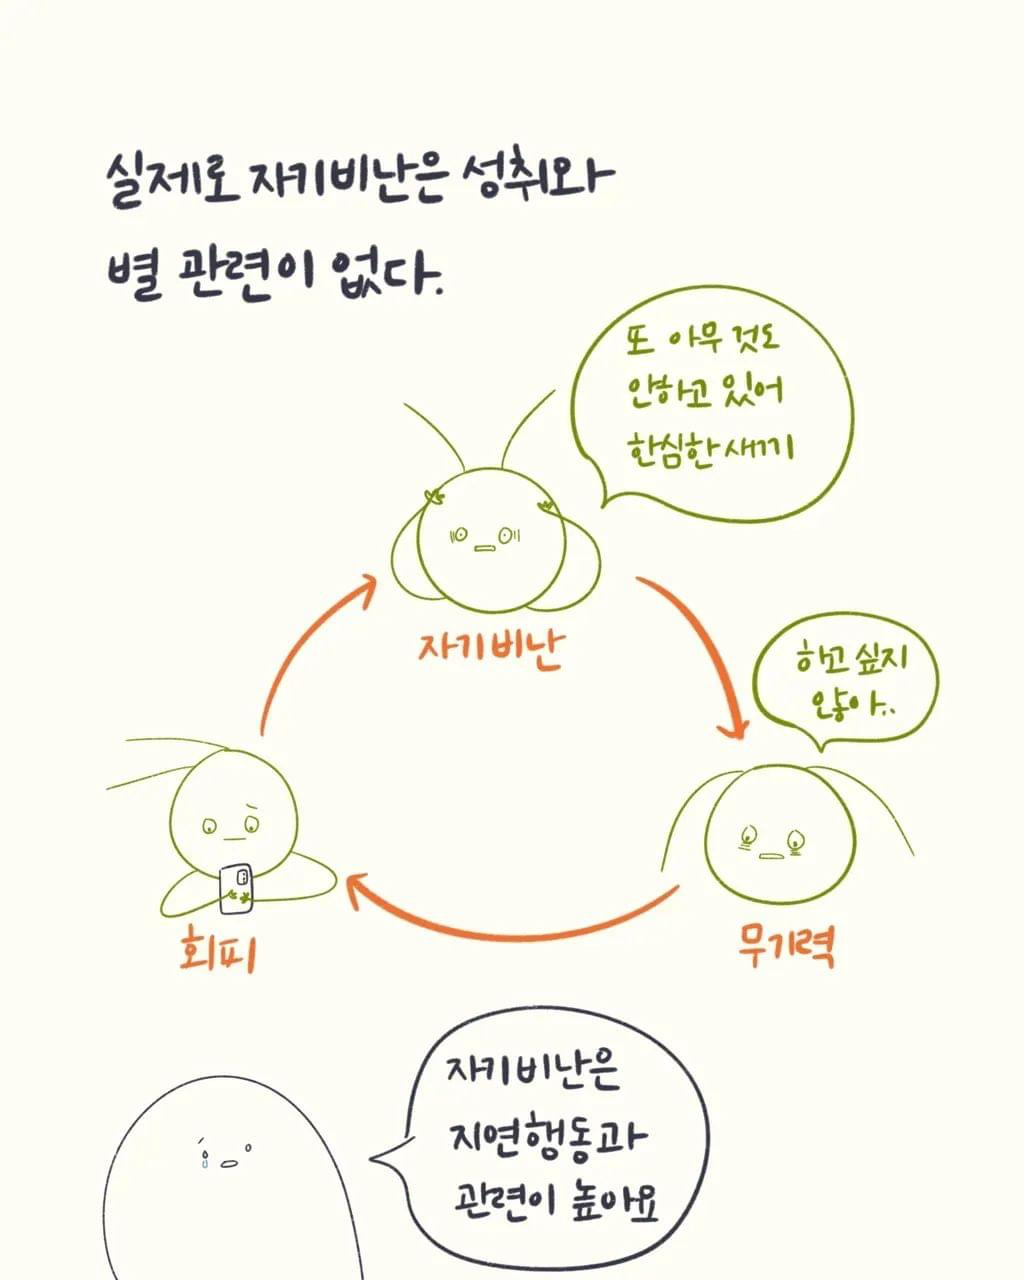 실제로 자기비난은 성취와
별 관련이 없다.
또 아무 것도
안하고 있어
한심한 새끼
자기비난
하고 싶지
않아..
무기력
회피
자기비난은
지연행동과
관련이 높아요